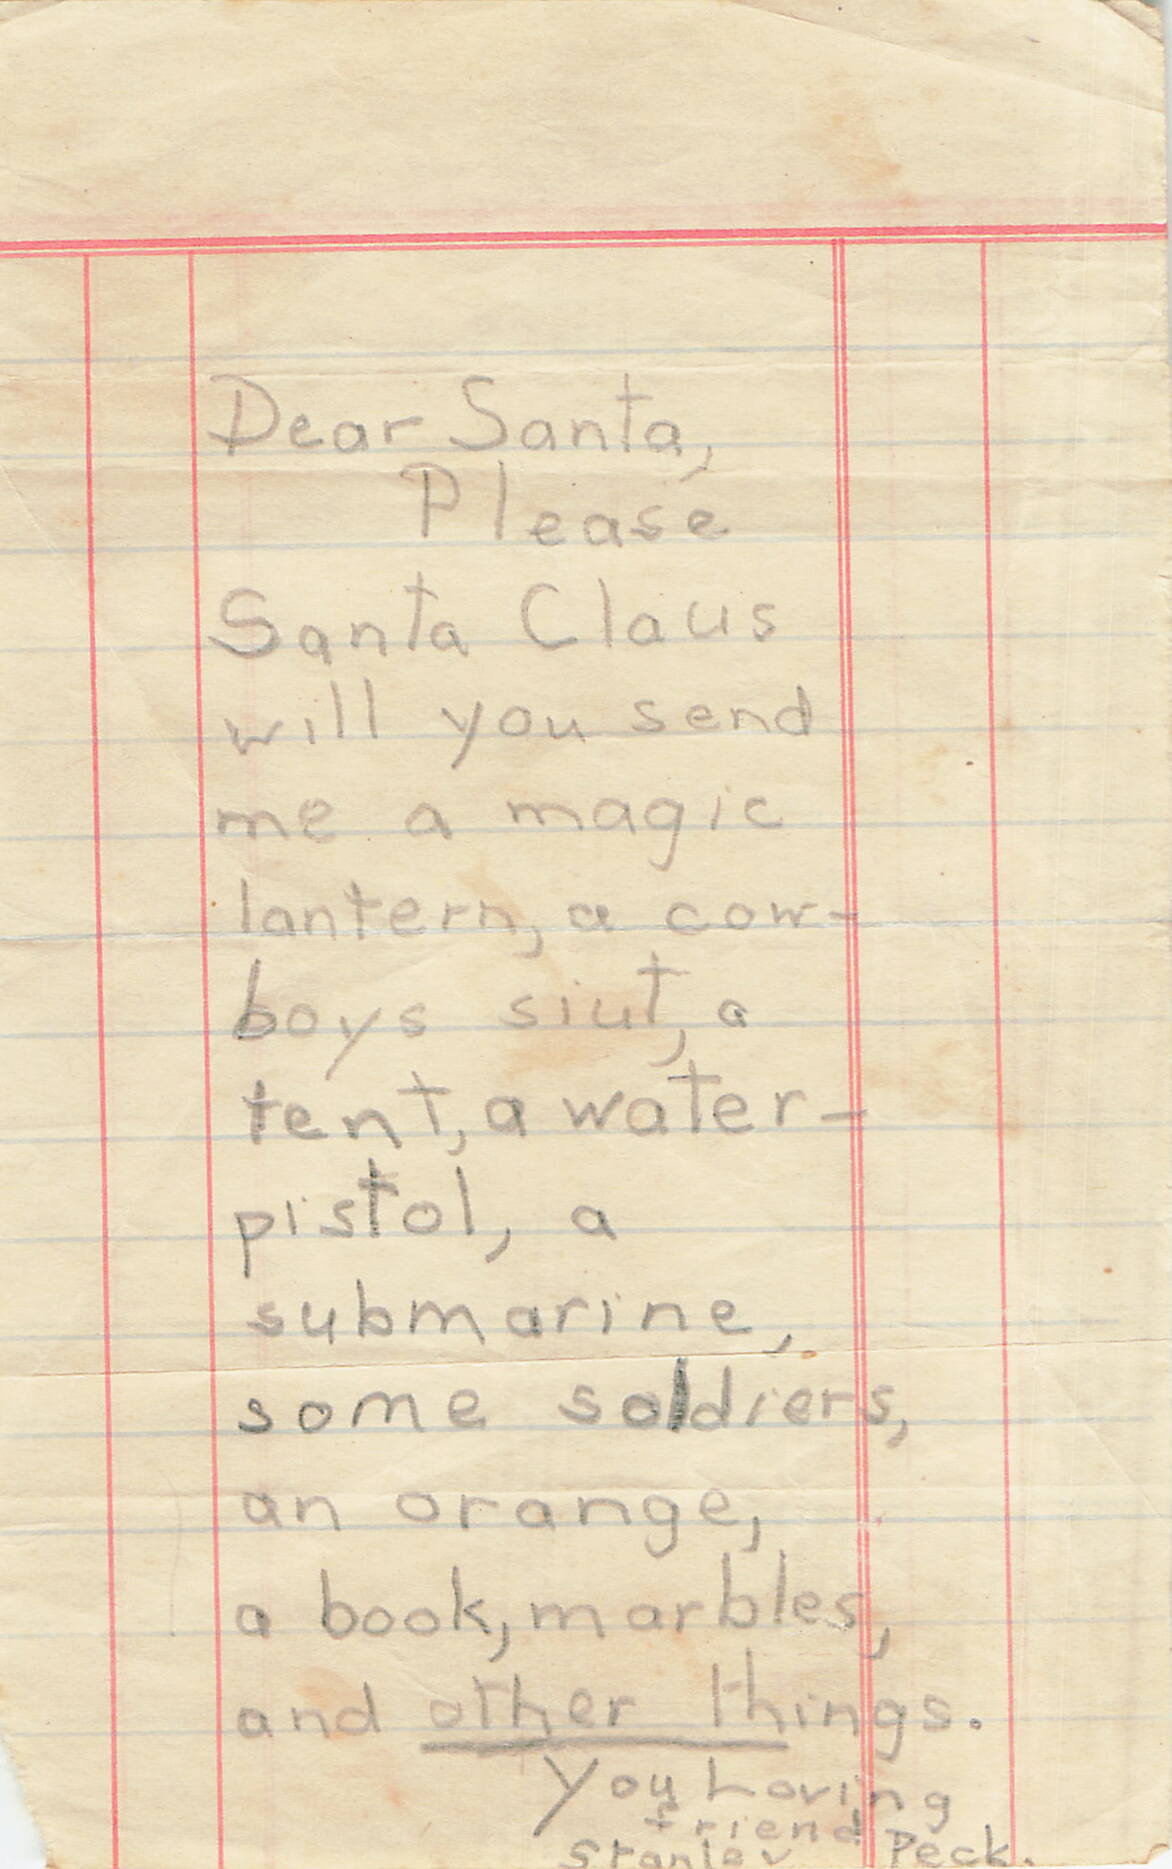 Dear Santa,
Please
Santa Claus
will you send
me a magic
lantern, a cow-
boys siut, a
tent, a water-
pistol, a
submarine,
some soldiers,
an orange,
a book, marbles,
and other things.
You Loving
friend
Stanley Peck.